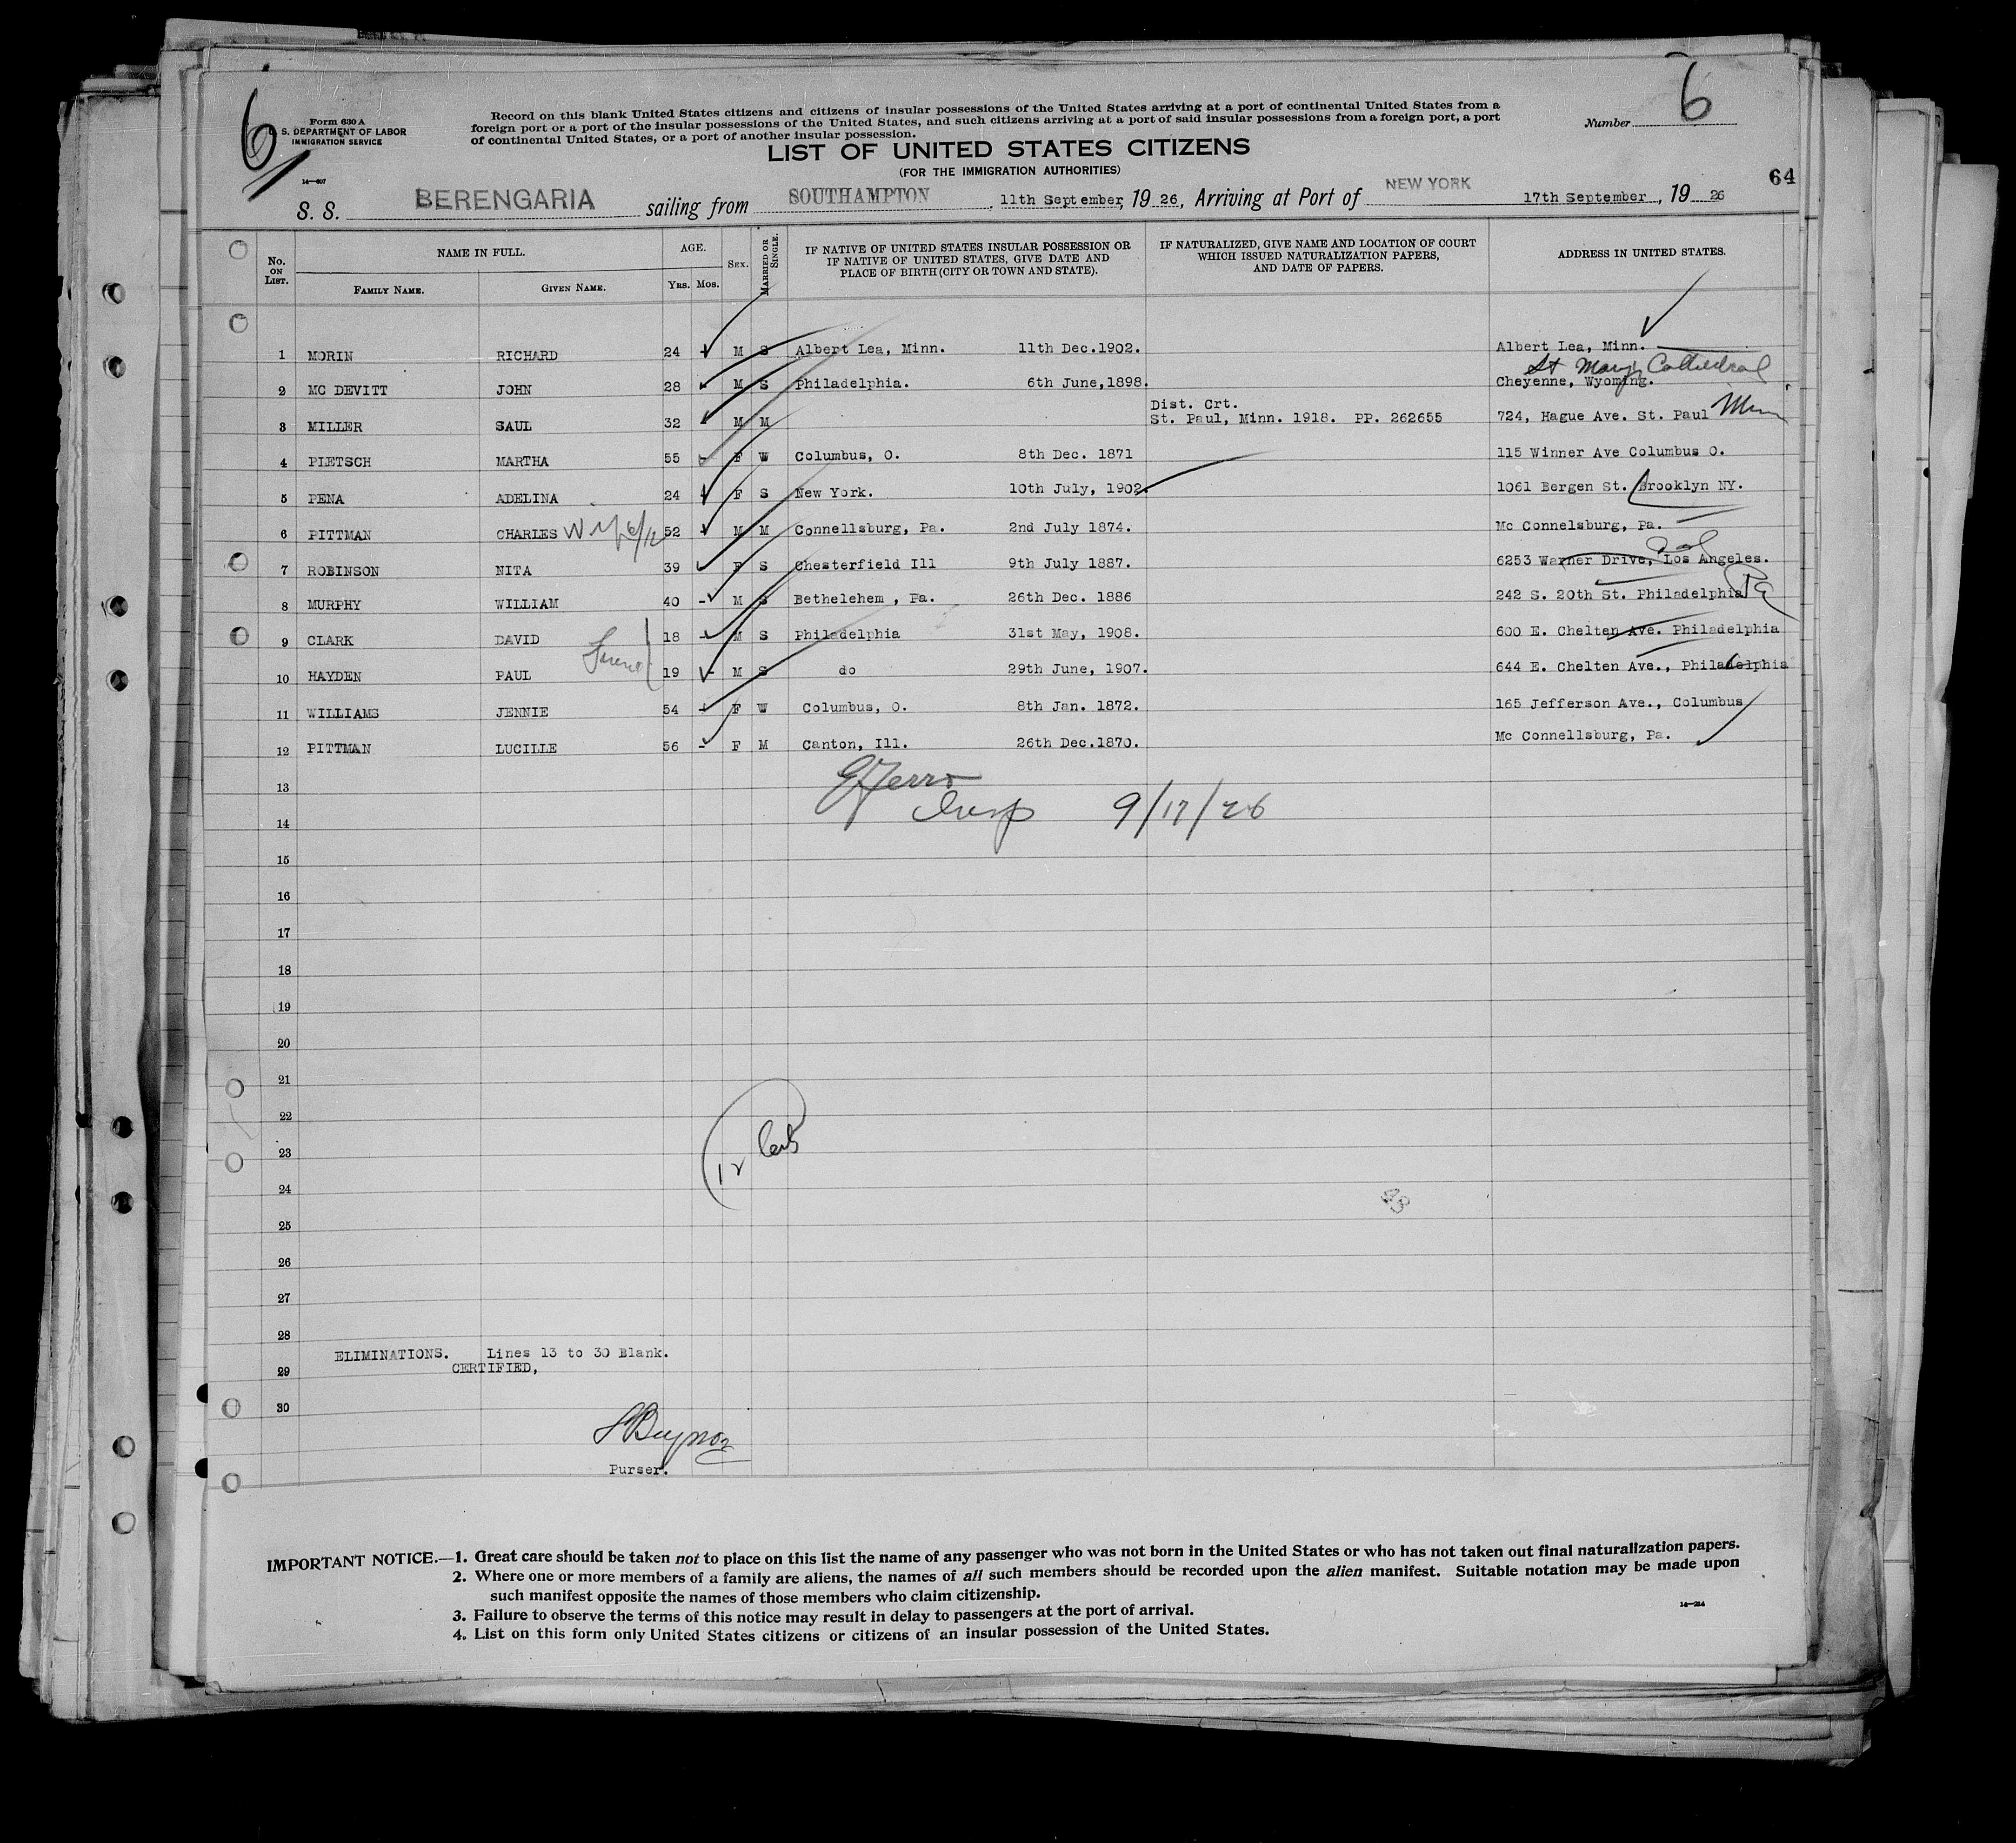 6
6
Form 630 A
U. S. DEPARTMENT OF LABOR
IMMIGRATION SERVICE
14—607
Record on this blank United States citizens and citizens of insular possessions of the United States arriving at a port of continental United States from a
foreign port or a port of the insular possessions of the United States, and such citizens arriving at a port of said insular possessions from a foreign port, a port
of continental United States, or a port of another insular possession.
Number
LIST OF UNITED STATES CITIZENS
(FOR THE IMMIGRATION AUTHORITIES)
64
S. S. BERENGARIA sailing from SOUTHAMPTON, 11th September, 19 26, Arriving at Port of NEW YORK 17th September, 19 26
No. ON LIST. NAME IN FULL. AGE. SEX. MARRIED OR SINGLE. IF NATIVE OF UNITED STATES INSULAR POSSESSION OR IF NATIVE OF UNITED STATES, GIVE DATE AND PLACE OF BIRTH (CITY OR TOWN AND STATE). IF NATURALIZED, GIVE NAME AND LOCATION OF COURT WHICH ISSUED NATURALIZATION PAPERS, AND DATE OF PAPERS. ADDRESS IN UNITED STATES.
FAMILY NAME. GIVEN NAME. YRS. MOS.
1 MORIN RICHARD 24 M S Albert Lea, Minn. 11th Dec.1902. Albert Lea, Minn.
St Mary's Cathedral
2 MC DEVITT JOHN 28 M S Philadelphia. 6th June,1898. Cheyenne, Wyoming.
Dist. Crt.
3 MILLER SAUL 32 M M St. Paul, Minn. 1918. PP. 262655 724, Hague Ave. St. Paul Minn
4 PIETSCH MARTHA 55 - F W Columbus, O. 8th Dec. 1871 115 Winner Ave Columbus O.
5 PENA ADELINA 24 F S New York. 10th July, 1902. 1061 Bergen St. Brooklyn NY.
6 PITTMAN CHARLES 52 M M Connellsburg, Pa. 2nd July 1874. Mc Connelsburg, Pa.
7 ROBINSON NITA 39 F S Chesterfield Ill 9th July 1887. 6253 Warner Drive, Los Angeles. Cal
8 MURPHY WILLIAM 40 - M S Bethelehem , Pa. 26th Dec. 1886 242 S. 20th St. Philadelphia Pa
9 CLARK DAVID 18 - M S Philadelphia 31st May, 1908. 600 E. Chelten Ave. Philadelphia
10 HAYDEN PAUL 19 - M S do 29th June, 1907. 644 E. Chelten Ave., Philadelphia
11 WILLIAMS JENNIE 54 - F W Columbus, O. 8th Jan. 1872. 165 Jefferson Ave., Columbus
12 PITTMAN LUCILLE 56 - F M Canton, Ill. 26th Dec.1870. Mc Connellsburg, Pa.
13
Insp 9/17/26
14
15
16
17
18
19
20
21
22
23
12
24
43
25
26
27
28
ELIMINATIONS. Lines 13 to 30 Blank.
29 CERTIFIED,
30
Purser.
IMPORTANT NOTICE.—1. Great care should be taken not to place on this list the name of any passenger who was not born in the United States or who has not taken out final naturalization papers.
2. Where one or more members of a family are aliens, the names of all such members should be recorded upon the alien manifest. Suitable notation may be made upon
such manifest opposite the names of those members who claim citizenship.
3. Failure to observe the terms of this notice may result in delay to passengers at the port of arrival.
14—214
4. List on this form only United States citizens or citizens of an insular possession of the United States.